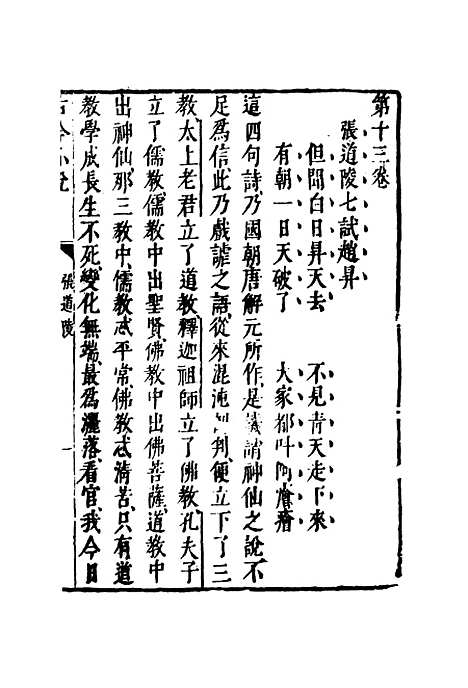 第十三卷
張道陵七試趙昇
但聞白日昇天去 不見青天走下來
有朝一日天破了 大家都叫阿癐癐
這四句詩乃國朝唐解元所作是譏誚神仙之說不
足爲信此乃戲謔之語從來混沌判便立下了三
教太上老君立了道教釋迦祖師立了佛教孔夫子
立了儒教儒教中出聖賢佛教中出佛菩薩道教中
出神仙那三教中儒教忒平常佛教忒清苦只有道
教學成長生不死變化無端最爲灑落看官我今日
古今小說
張道陵
一